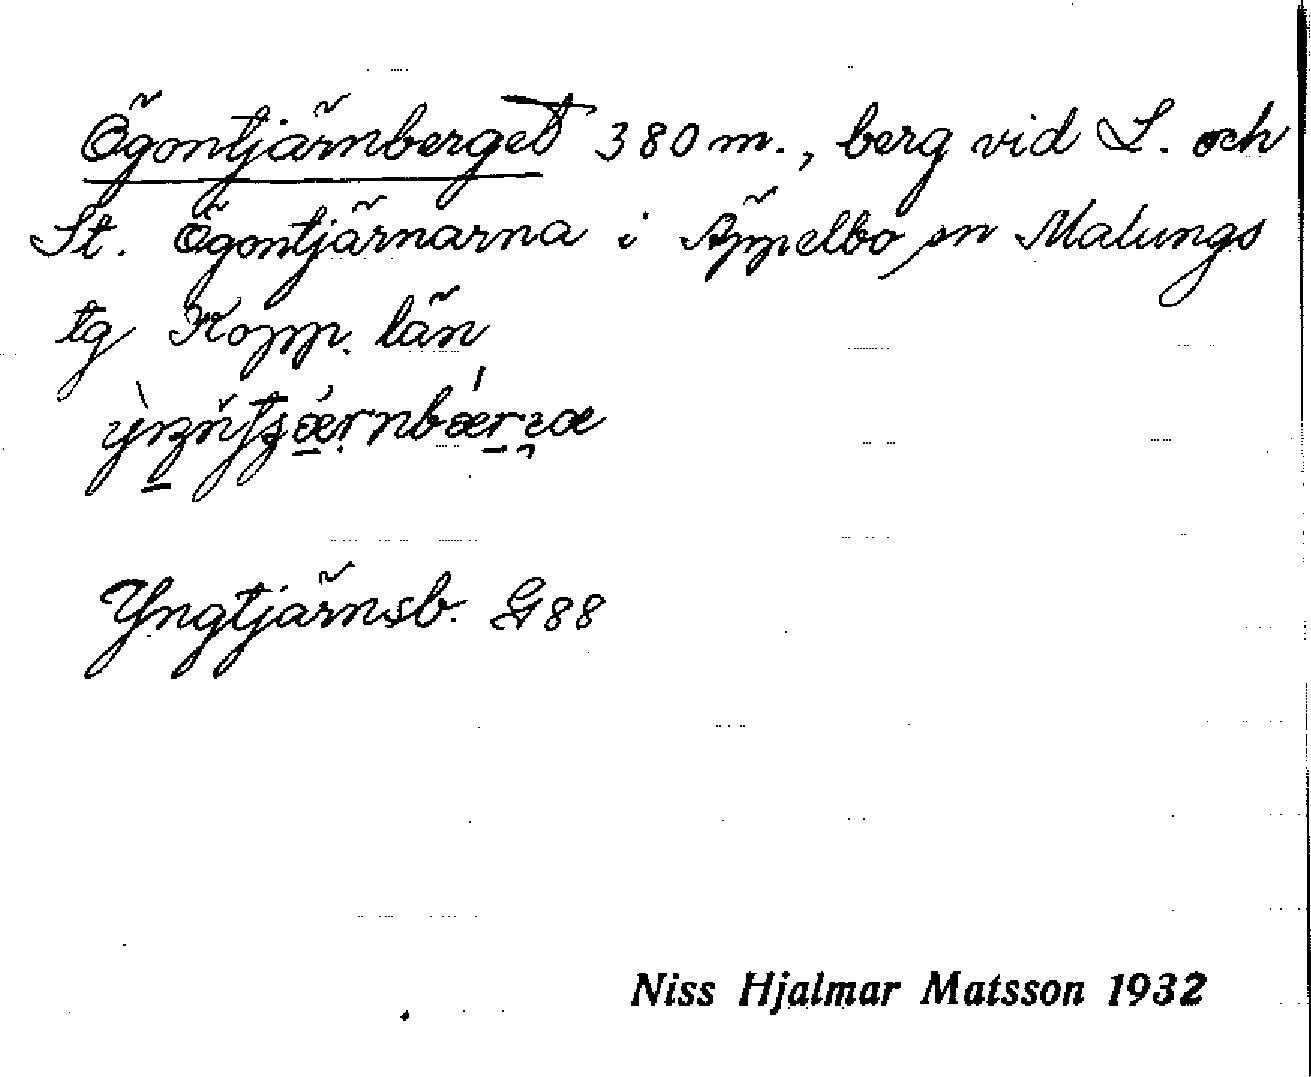 Ögontjärnberget 380 m., berg vid L. och
St. Ögontjärnarna i Äppelbo sn Malungs
tg Kopp. län
Yngtjärnsb. G88
Niss Hjalmar Matsson 1932